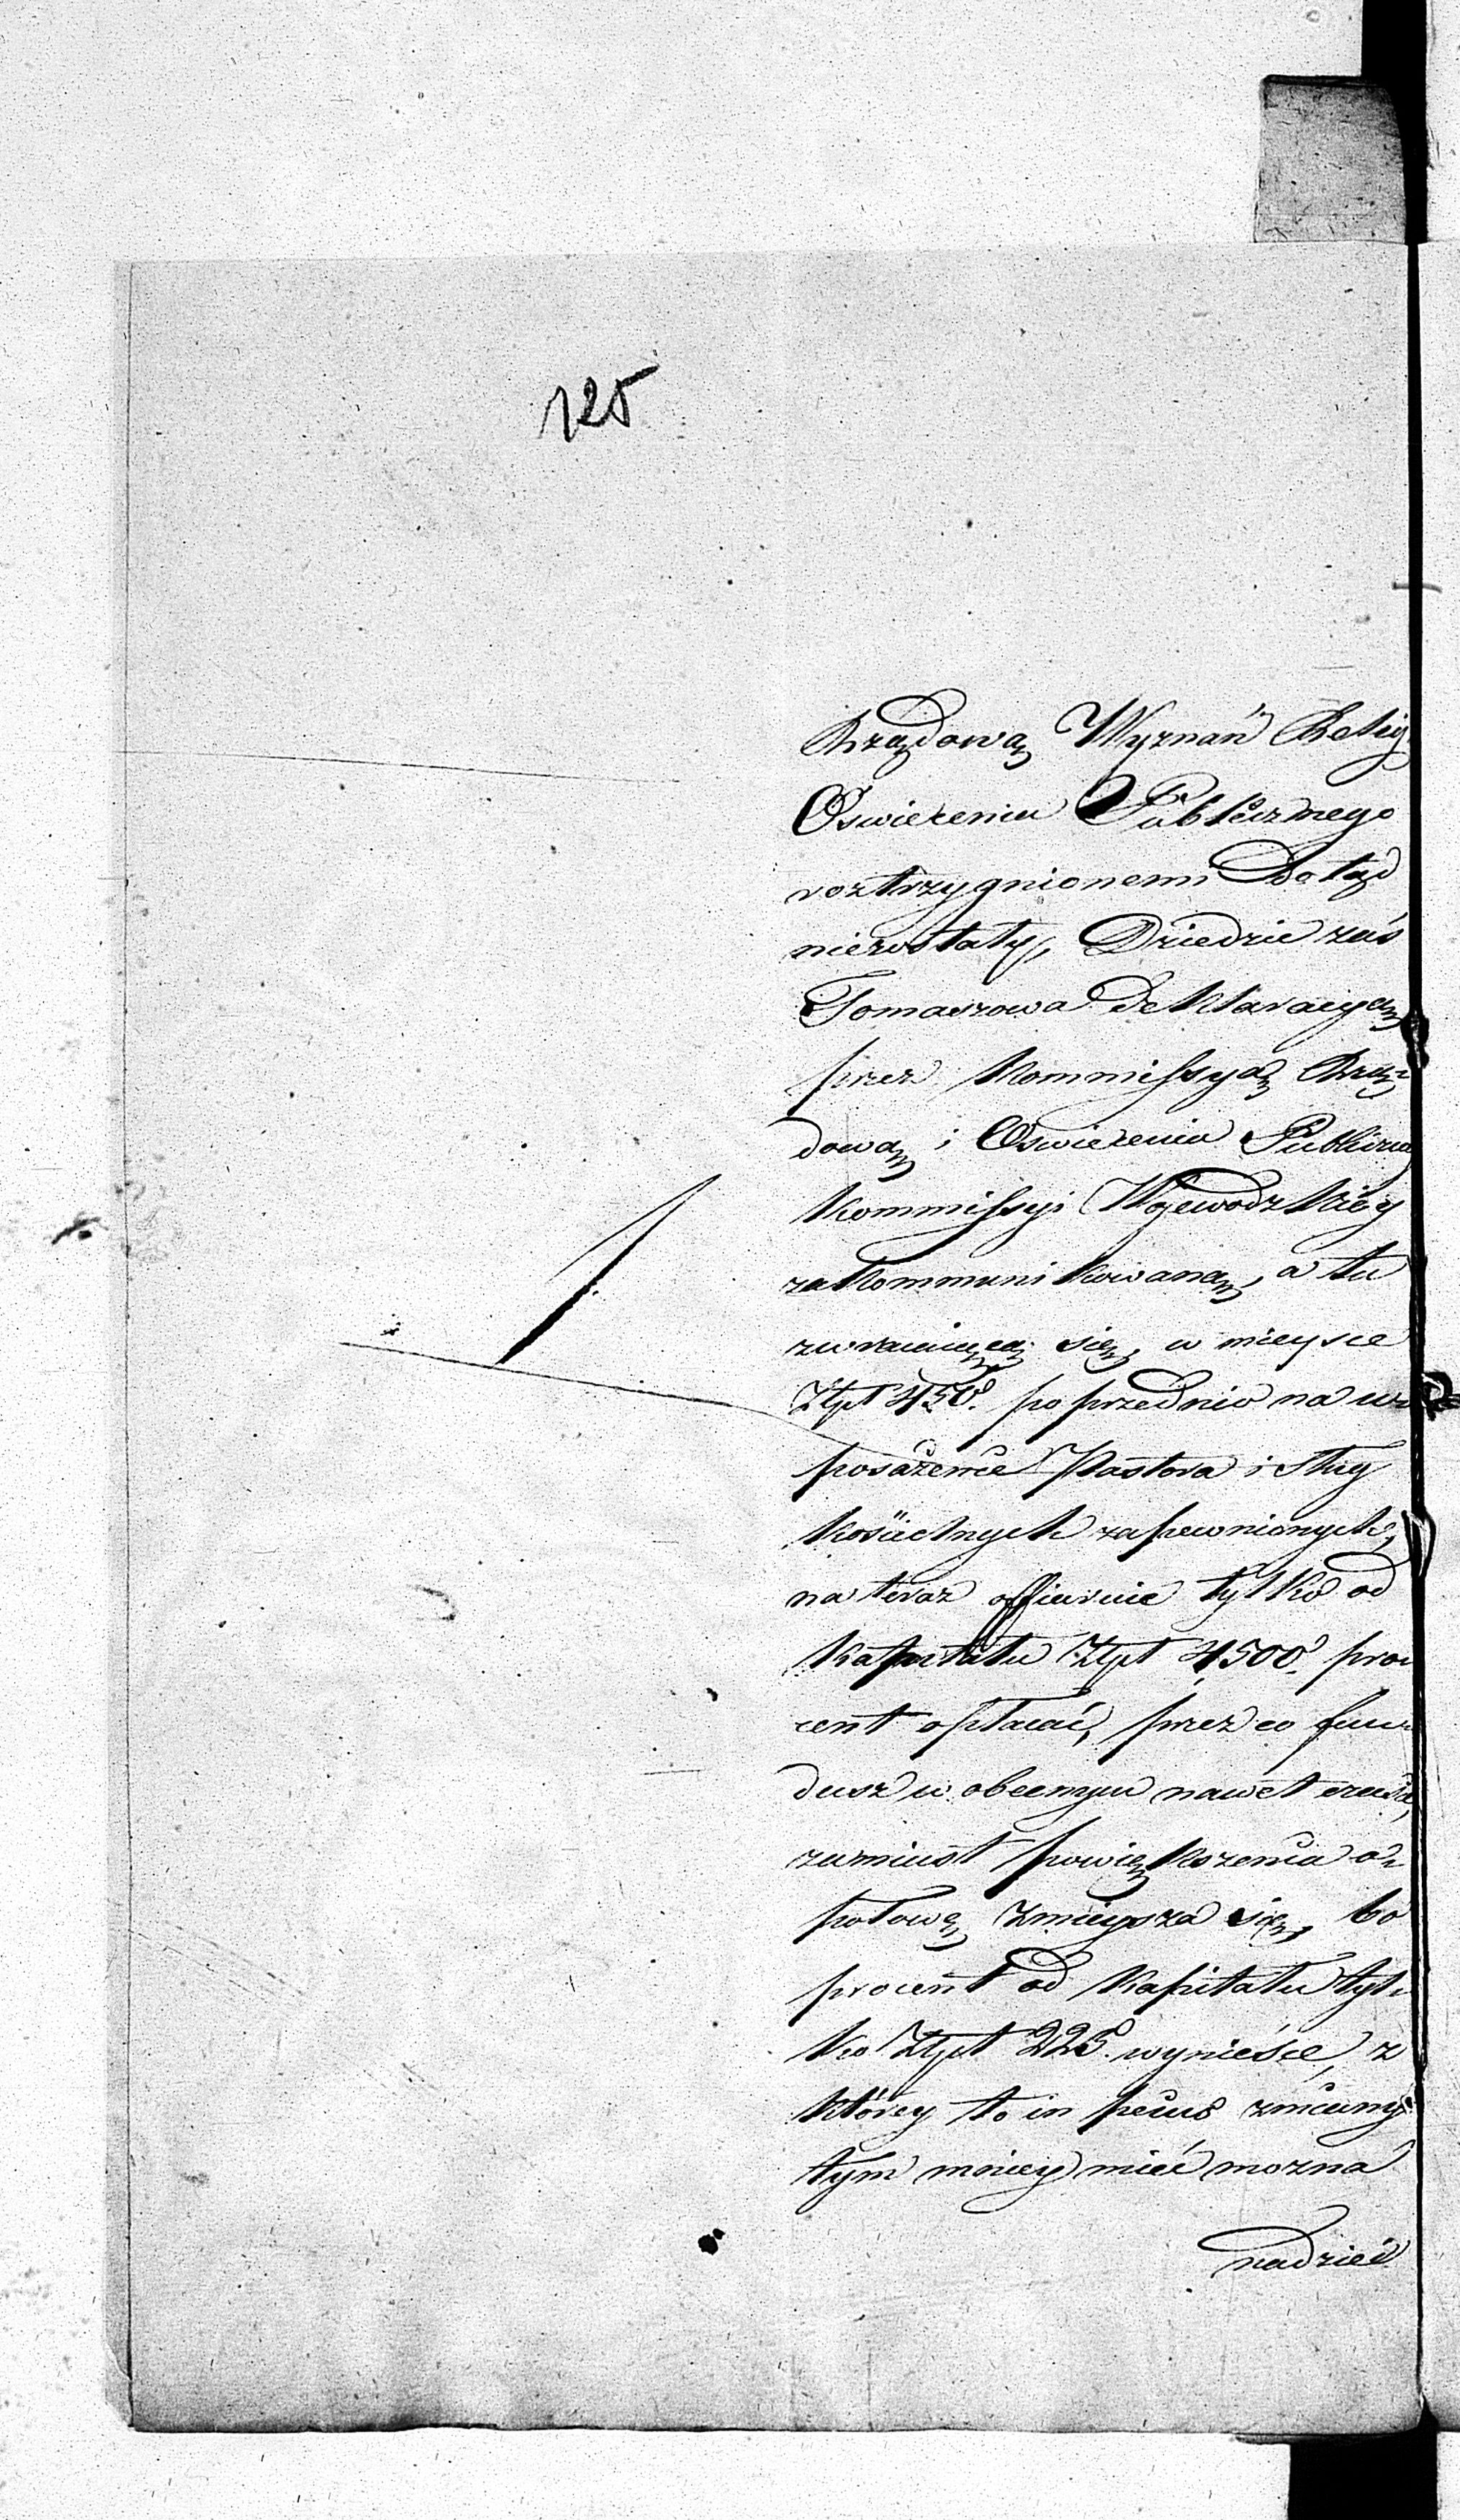 125
Rządową Wyznań Relig
Oswiecenia Publicznego
roztrzygnionemi dotąd
niezostały, Dziedzic zaś
Tomaszowa deklaracyą
przez Kommissyą Rzą-
dową i Oswiecenia Publiczne
Kommissyi Wojewodzkiéy
zakommunikowaną, a tu
zwracającą się, w mieysce
Złpt 450. poprzednio na u
posażenie Pastora i sług
kościelnych zapewnionych,
na teraz offiaruie tylko od
Kapitału Złpt 4,500. pro
cent opłacać, przez co fun
dusz w obecnym nawet czasie,
zamiast powiększenia o
połowę zmieysza się, bo
procent od Kapitału tyl
ko Złpt 225. wyniesie, z
któréy to in peius zmiany
tym mniey mieć mozna
nadziei